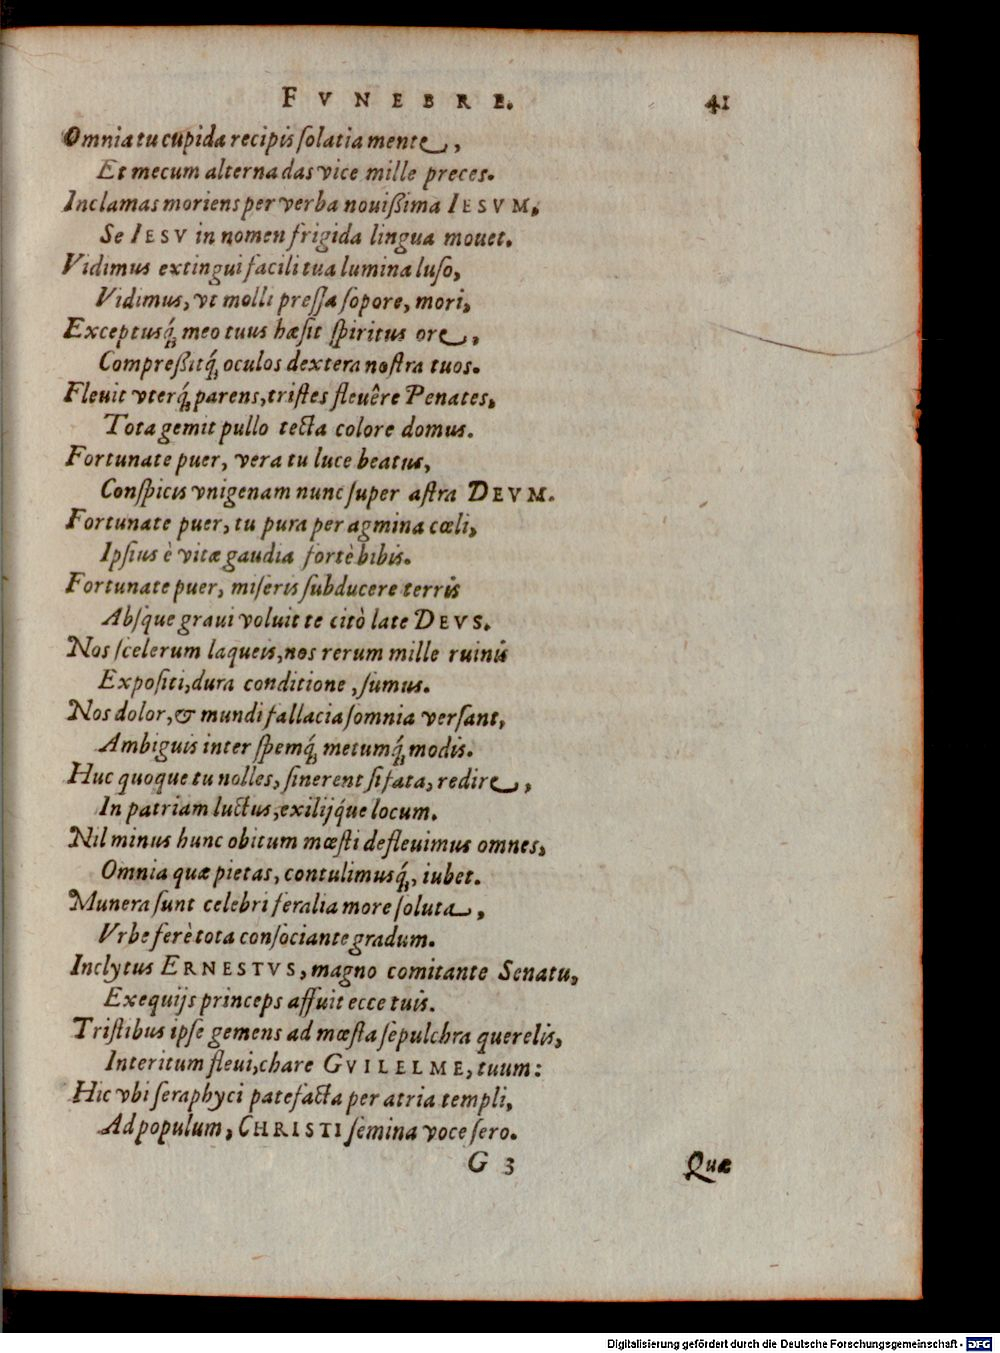 FVNEBRE. 41
Omnia tu cupida recipis ſolatia mente,
Et mecum alterna das vice mille preces.
Inclamas moriens per verba nouißima IESVM,
Se IESV in nomen frigida lingua mouet.
Vidimus extingui facili tua lumina luſo,
Vidimus, vt molli preſſa ſopore, mori,
Exceptusq́; meo tuus hæſit ſpiritus ore,
Compreßitq́; oculos dextera noſtra tuos.
Fleuit vterq́; parens, triſtes fleuêre Penates,
Tota gemit pullo tecta colore domus.
Fortunate puer, vera tu luce beatus,
Conſpicis vnigenam nunc ſuper aſtra DEVM.
Fortunate puer, tu pura per agmina cœli,
Ipſius è vitæ gaudia fortè bibis.
Fortunate puer, miſeris ſubducere terris
Abſque graui voluit te citò late DEVS.
Nos ſcelerum laqueis, nos rerum mille ruinis
Expoſiti, dura conditione, ſumus.
Nos dolor, & mundi fallacia ſomnia verſant,
Ambiguis inter ſpemq́; metumq́; modis.
Huc quoque tu nolles, ſinerent ſi fata, redire,
In patriam luctus, exilijq́ue locum.
Nil minus hunc obitum mœſti defleuimus omnes,
Omnia quæ pietas, contulimusq́;, iubet.
Munera ſunt celebri feralia more ſoluta,
Vrbe ferè tota conſociante gradum.
Inclytus ERNESTVS, magno comitante Senatu,
Exequijs princeps affuit ecce tuis.
Triſtibus ipſe gemens ad mœſta ſepulchra querelis,
Interitum fleui, chare GVILELME, tuum:
Hic vbi ſeraphyci patefacta per atria templi,
Ad populum, CHRISTI ſemina voce ſero.
G 3 Quæ
Digitalisierung gefördert durch die Deutsche Forschungsgemeinschaft - DFG